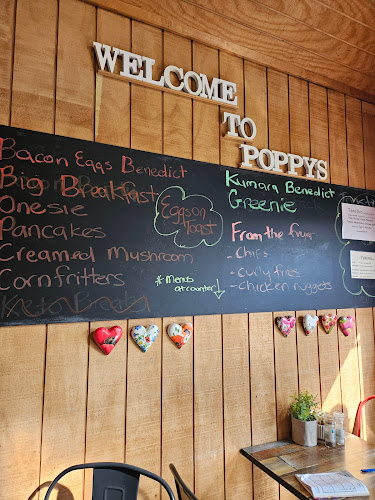 WELCOME
TO
POPPYS
Bacon Eggs Benedict
Big Breakfast
Onesie
Pancakes
Creamed Mushroom
Cornfritters
Keto Breaky
Eggs on
Toast
#Menus
at counter
Kumara Benedict
Greenie
From the fryer
- Chips
- Curly fries
- Chicken nuggets